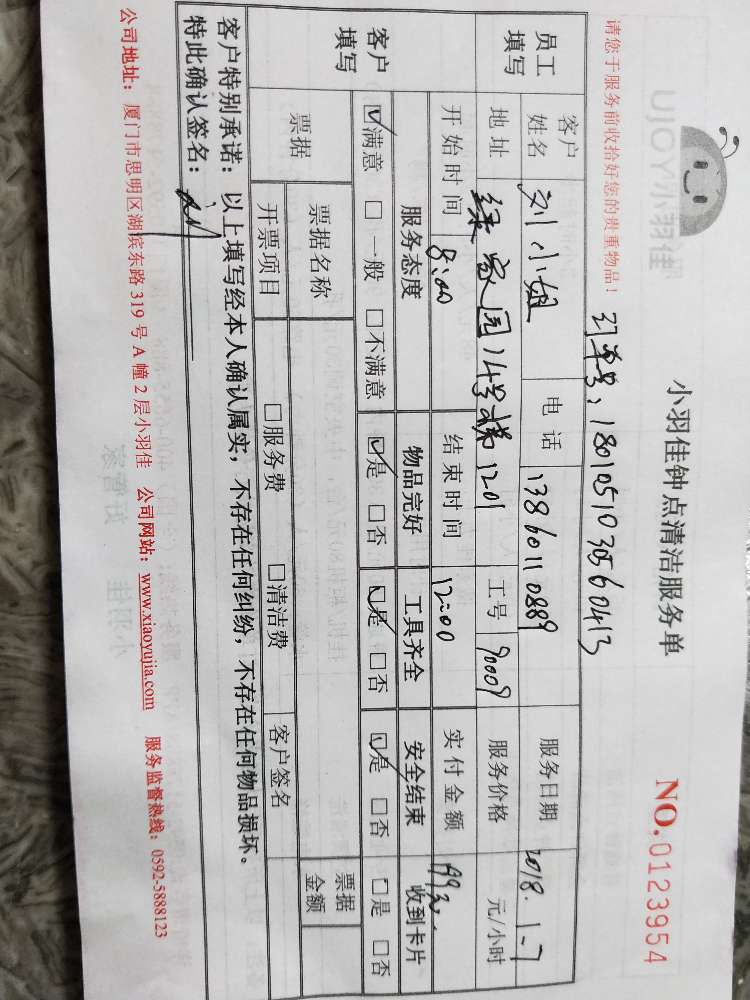 UJOY小羽佳
小羽佳钟点清洁服务单
NO.0123954
请您于服务前收拾好您的贵重物品！
订单号：1801051030560413
员工填写
客户姓名 刘小姐 电话 13860110889 服务日期 2018.1.7
地址 绿家园14号楼1201 工号 90009 服务价格 元/小时
开始时间 8:00 结束时间 12:00 实付金额
客户填写
服务态度 物品完好 工具齐全 安全结束 收到卡片
☑满意 □一般 □不满意 ☑是 □否 ☑是 □否 ☑是 □否 □是 □否
票据 票据名称 票据金额
开票项目 □服务费 □清洁费 客户签名
客户特别承诺：以上填写经本人确认属实，不存在任何纠纷，不存在任何物品损坏。
特此确认签名：
公司地址：厦门市思明区湖滨东路319号A幢2层小羽佳 公司网站：www.xiaoyujia.com 服务监督热线：0592-5888123